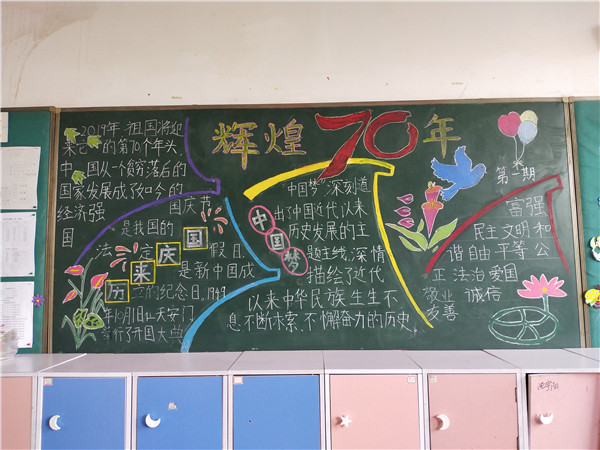 辉煌70年
2019年祖国将迎
来它的第70个年头,
中国从一个贫穷落后的
国家发展成了如今的
经济强
国
国庆节
是我国的
法定
假日,
国庆来历
是新中国成
立的纪念日,1949
年10月1日在天安门
举行了开国大典
"中国梦"深刻道
出了中国近代以来
历史发展的主
题主线,深情
描绘了近代
以来中华民族生生不
息、不断求索、不懈奋力的历史。
中国梦
第一期
富强
民主 文明 和
谐 自由 平等 公
正 法治 爱国
敬业 诚信
友善